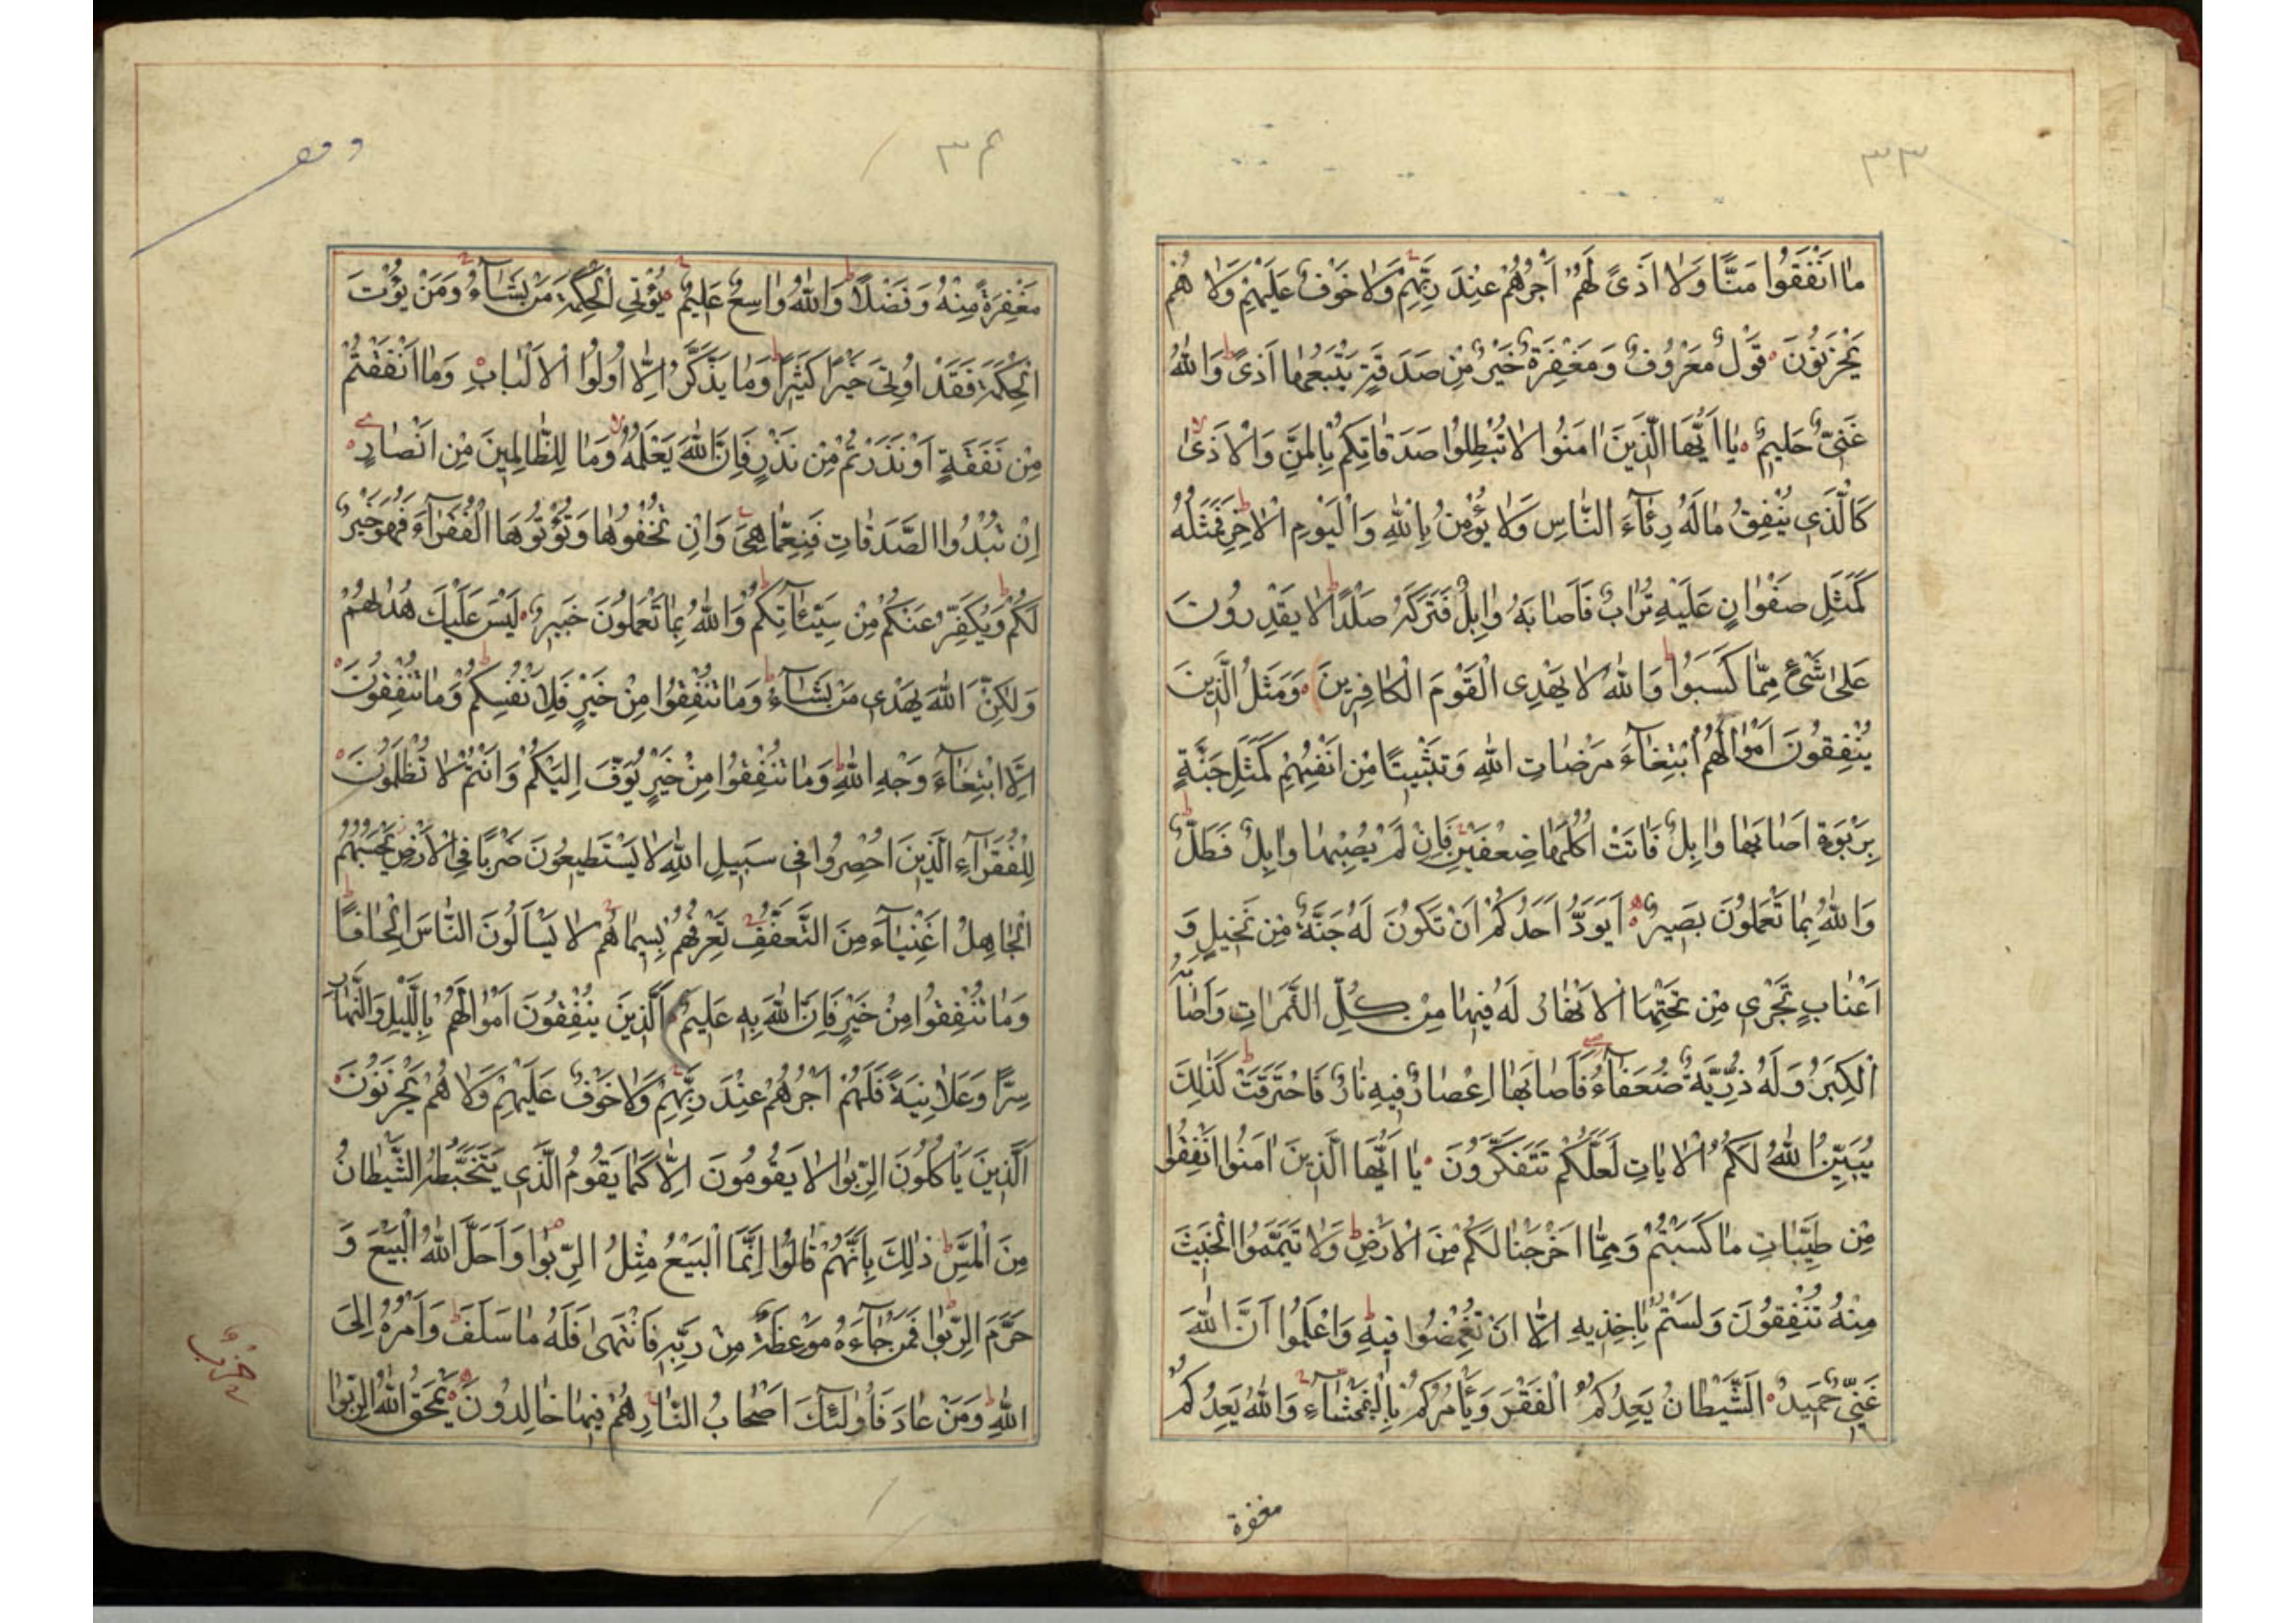 ٣٣
مٰا اَنْفَقُوا مَنًّا وَلٰا اَذىً لَهُمْ اَجْرُهُمْ عِنْدَ رَبِّهِمْ وَلٰا خَوْفٌ عَلَيْهِمْ وَلٰا هُمْ
يَحْزَنُونَ قَوْلٌ مَعْرُوفٌ وَمَغْفِرَةٌ خَيْرٌ مِنْ صَدَقَةٍ يَتْبَعُهٰا اَذىً وَاللّٰهُ
غَنِيٌّ حَلِيمٌ يٰا اَيُّهَا الَّذِينَ اٰمَنُوا لٰا تُبْطِلُوا صَدَقٰاتِكُمْ بِالْمَنِّ وَالْاَذىٰ
كَالَّذِي يُنْفِقُ مٰالَهُ رِئٰآءَ النّٰاسِ وَلٰا يُؤْمِنُ بِاللّٰهِ وَالْيَوْمِ الْاٰخِرِ فَمَثَلُهُ
كَمَثَلِ صَفْوٰانٍ عَلَيْهِ تُرٰابٌ فَاَصٰابَهُ وٰابِلٌ فَتَرَكَهُ صَلْدًا لٰا يَقْدِرُونَ
عَلىٰ شَيْءٍ مِمّٰا كَسَبُوا وَاللّٰهُ لٰا يَهْدِي الْقَوْمَ الْكٰافِرِينَ وَمَثَلُ الَّذِينَ
يُنْفِقُونَ اَمْوٰالَهُمُ ابْتِغٰآءَ مَرْضٰاتِ اللّٰهِ وَتَثْبِيتًا مِنْ اَنْفُسِهِمْ كَمَثَلِ جَنَّةٍ
بِرَبْوَةٍ اَصٰابَهٰا وٰابِلٌ فَاٰتَتْ اُكُلَهٰا ضِعْفَيْنِ فَاِنْ لَمْ يُصِبْهٰا وٰابِلٌ فَطَلٌّ
وَاللّٰهُ بِمٰا تَعْمَلُونَ بَصِيرٌ اَيَوَدُّ اَحَدُكُمْ اَنْ تَكُونَ لَهُ جَنَّةٌ مِنْ نَخِيلٍ وَ
اَعْنٰابٍ تَجْرِي مِنْ تَحْتِهَا الْاَنْهٰارُ لَهُ فِيهٰا مِنْ كُلِّ الثَّمَرٰاتِ وَاَصٰابَهُ
الْكِبَرُ وَلَهُ ذُرِّيَّةٌ ضُعَفٰآءُ فَاَصٰابَهٰا اِعْصٰارٌ فِيهِ نٰارٌ فَاحْتَرَقَتْ كَذٰلِكَ
يُبَيِّنُ اللّٰهُ لَكُمُ الْاٰيٰاتِ لَعَلَّكُمْ تَتَفَكَّرُونَ يٰا اَيُّهَا الَّذِينَ اٰمَنُوا اَنْفِقُوا
مِنْ طَيِّبٰاتِ مٰا كَسَبْتُمْ وَمِمّٰا اَخْرَجْنٰا لَكُمْ مِنَ الْاَرْضِ وَلٰا تَيَمَّمُوا الْخَبِيثَ
مِنْهُ تُنْفِقُونَ وَلَسْتُمْ بِاٰخِذِيهِ اِلّٰا اَنْ تُغْمِضُوا فِيهِ وَاعْلَمُوا اَنَّ اللّٰهَ
غَنِيٌّ حَمِيدٌ اَلشَّيْطٰانُ يَعِدُكُمُ الْفَقْرَ وَيَأْمُرُكُمْ بِالْفَحْشٰآءِ وَاللّٰهُ يَعِدُكُمْ
مغفرة
٣۴
مَغْفِرَةً مِنْهُ وَفَضْلًا وَاللّٰهُ وٰاسِعٌ عَلِيمٌ يُؤْتِي الْحِكْمَةَ مَنْ يَشٰآءُ وَمَنْ يُؤْتَ
الْحِكْمَةَ فَقَدْ اُوتِيَ خَيْرًا كَثِيرًا وَمٰا يَذَّكَّرُ اِلّٰا اُولُوا الْاَلْبٰابِ وَمٰا اَنْفَقْتُمْ
مِنْ نَفَقَةٍ اَوْ نَذَرْتُمْ مِنْ نَذْرٍ فَاِنَّ اللّٰهَ يَعْلَمُهُ وَمٰا لِلظّٰالِمِينَ مِنْ اَنْصٰارٍ
اِنْ تُبْدُوا الصَّدَقٰاتِ فَنِعِمّٰا هِيَ وَاِنْ تُخْفُوهٰا وَتُؤْتُوهَا الْفُقَرٰآءَ فَهُوَ خَيْرٌ
لَكُمْ وَيُكَفِّرُ عَنْكُمْ مِنْ سَيِّئٰاتِكُمْ وَاللّٰهُ بِمٰا تَعْمَلُونَ خَبِيرٌ لَيْسَ عَلَيْكَ هُدٰاهُمْ
وَلٰكِنَّ اللّٰهَ يَهْدِي مَنْ يَشٰآءُ وَمٰا تُنْفِقُوا مِنْ خَيْرٍ فَلِاَنْفُسِكُمْ وَمٰا تُنْفِقُونَ
اِلَّا ابْتِغٰآءَ وَجْهِ اللّٰهِ وَمٰا تُنْفِقُوا مِنْ خَيْرٍ يُوَفَّ اِلَيْكُمْ وَاَنْتُمْ لٰا تُظْلَمُونَ
لِلْفُقَرٰآءِ الَّذِينَ اُحْصِرُوا فِي سَبِيلِ اللّٰهِ لٰا يَسْتَطِيعُونَ ضَرْبًا فِي الْاَرْضِ يَحْسَبُهُمُ
الْجٰاهِلُ اَغْنِيٰآءَ مِنَ التَّعَفُّفِ تَعْرِفُهُمْ بِسِيمٰاهُمْ لٰا يَسْاَلُونَ النّٰاسَ اِلْحٰافًا
وَمٰا تُنْفِقُوا مِنْ خَيْرٍ فَاِنَّ اللّٰهَ بِهِ عَلِيمٌ اَلَّذِينَ يُنْفِقُونَ اَمْوٰالَهُمْ بِاللَّيْلِ وَالنَّهٰارِ
سِرًّا وَعَلٰانِيَةً فَلَهُمْ اَجْرُهُمْ عِنْدَ رَبِّهِمْ وَلٰا خَوْفٌ عَلَيْهِمْ وَلٰا هُمْ يَحْزَنُونَ
اَلَّذِينَ يَأْكُلُونَ الرِّبٰوا لٰا يَقُومُونَ اِلّٰا كَمٰا يَقُومُ الَّذِي يَتَخَبَّطُهُ الشَّيْطٰانُ
مِنَ الْمَسِّ ذٰلِكَ بِاَنَّهُمْ قٰالُوا اِنَّمَا الْبَيْعُ مِثْلُ الرِّبٰوا وَاَحَلَّ اللّٰهُ الْبَيْعَ وَ
حَرَّمَ الرِّبٰوا فَمَنْ جٰآءَهُ مَوْعِظَةٌ مِنْ رَبِّهِ فَانْتَهىٰ فَلَهُ مٰا سَلَفَ وَاَمْرُهُ اِلَى
اللّٰهِ وَمَنْ عٰادَ فَاُولٰئِكَ اَصْحٰابُ النّٰارِ هُمْ فِيهٰا خٰالِدُونَ يَمْحَقُ اللّٰهُ الرِّبٰوا
حزب